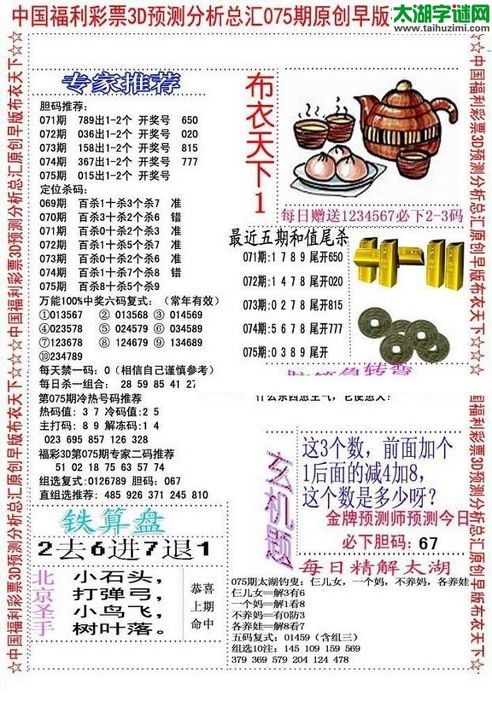 中国福利彩票3D预测分析总汇075期原创早版
太湖字谜网
www.taihuzimi.com
☆中国福利彩票3D预测分析总汇原创早版布衣天下☆
专家推荐
胆码推荐:
071期 789出1-2个 开奖号 650
072期 036出1-2个 开奖号 020
073期 158出1-2个 开奖号 815
074期 367出1-2个 开奖号 777
075期 015出1-2个 开奖号
定位杀码:
069期 百杀1十杀3个杀7 准
070期 百杀3十杀2个杀6 错
071期 百杀0十杀2个杀4 准
072期 百杀1十杀5个杀3 准
073期 百杀2十杀3个杀6 准
074期 百杀1十杀7个杀8 错
075期 百杀8十杀5个杀9
万能100%中奖六码复式: (常年有效)
①013567 ② 013568 ③ 014569
④023578 ⑤ 024579 ⑥ 024568
⑦123678 ⑧ 124679 ⑨ 134689
⑩234789
每天禁一码: 0 (相信自己谨慎参考)
每日杀一组合: 28 59 85 41 27
第075期冷热号码推荐
热码值: 3 7 冷码值:2 5
主打码: 8 9 解冻码: 1 4
023 695 857 126 328
福彩3D第075期专家二码推荐
51 02 18 75 63 57 74
组选复式:0126789 胆码: 067
直组选推荐: 485 926 371 245 810
布衣天下1
每日赠送1234567必下2-3码
最近五期和值尾杀
071期:1 7 8 9 尾开650
072期:1 4 7 8 尾开020
073期:0 2 7 8 尾开815
074期:5 6 7 8 尾开777
075期:0 3 8 9 尾开
铁算盘
2去6进7退1
北京圣手
小石头,
打弹弓,
小鸟飞,
树叶落。
恭喜
上期
命中
玄机题
这3个数,前面加个
1后面的减4加8,
这个数是多少呀?
金牌预测师预测今日
必下胆码: 67
每日精解太湖
075期太湖钓叟: 仨儿女, 一个妈, 不养妈, 各养娃
仨儿女==解3有6
一个妈==解1看8
不养妈==有0防3
各养娃==解8看7
五码复式: 01459 (含组三)
组选10注: 145 109 159 569
379 369 579 204 124 478
☆中国福利彩票3D预测分析总汇原创早版布衣天下☆